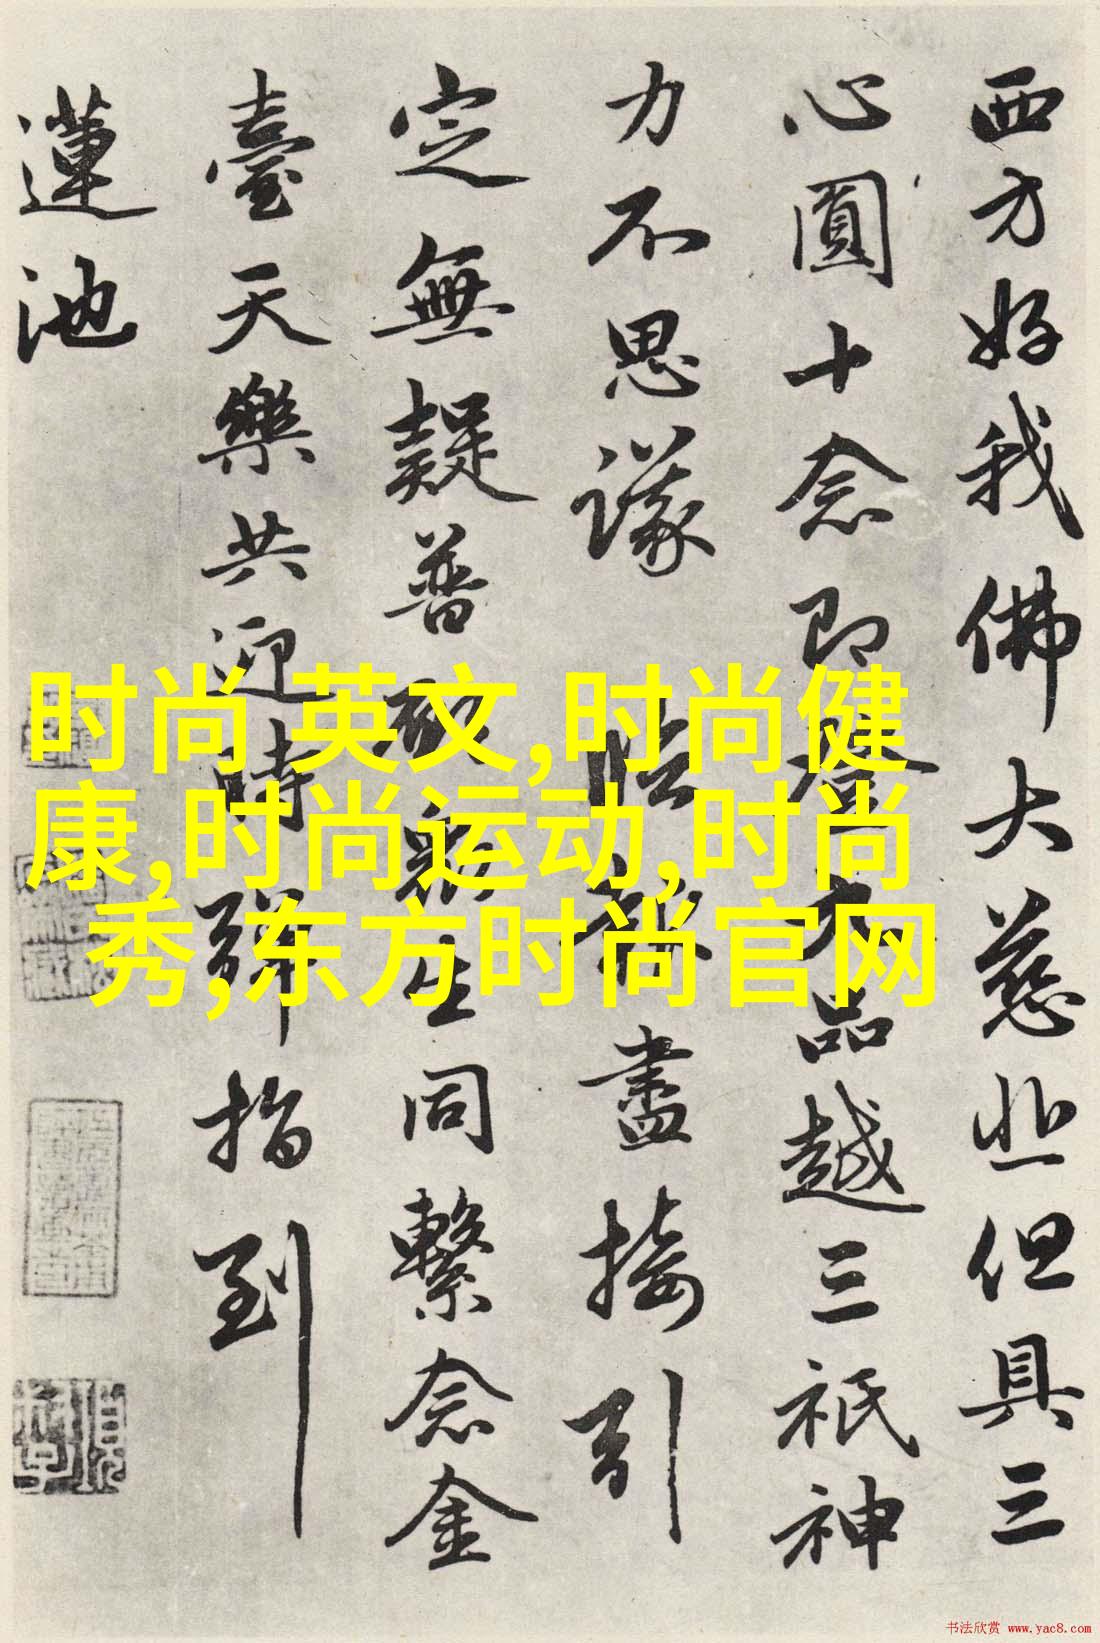 西方好我佛大慈悲但具三
心圓十念即登大品越三祇神
力不思議 臨報盡接引
定無疑普勸眾生同繫念金
臺天樂共迎時彈指到
蓮池
时尚 英文,时尚健
康,时尚运动,时尚
秀,东方时尚官网
书法欣赏 www.yac8.com